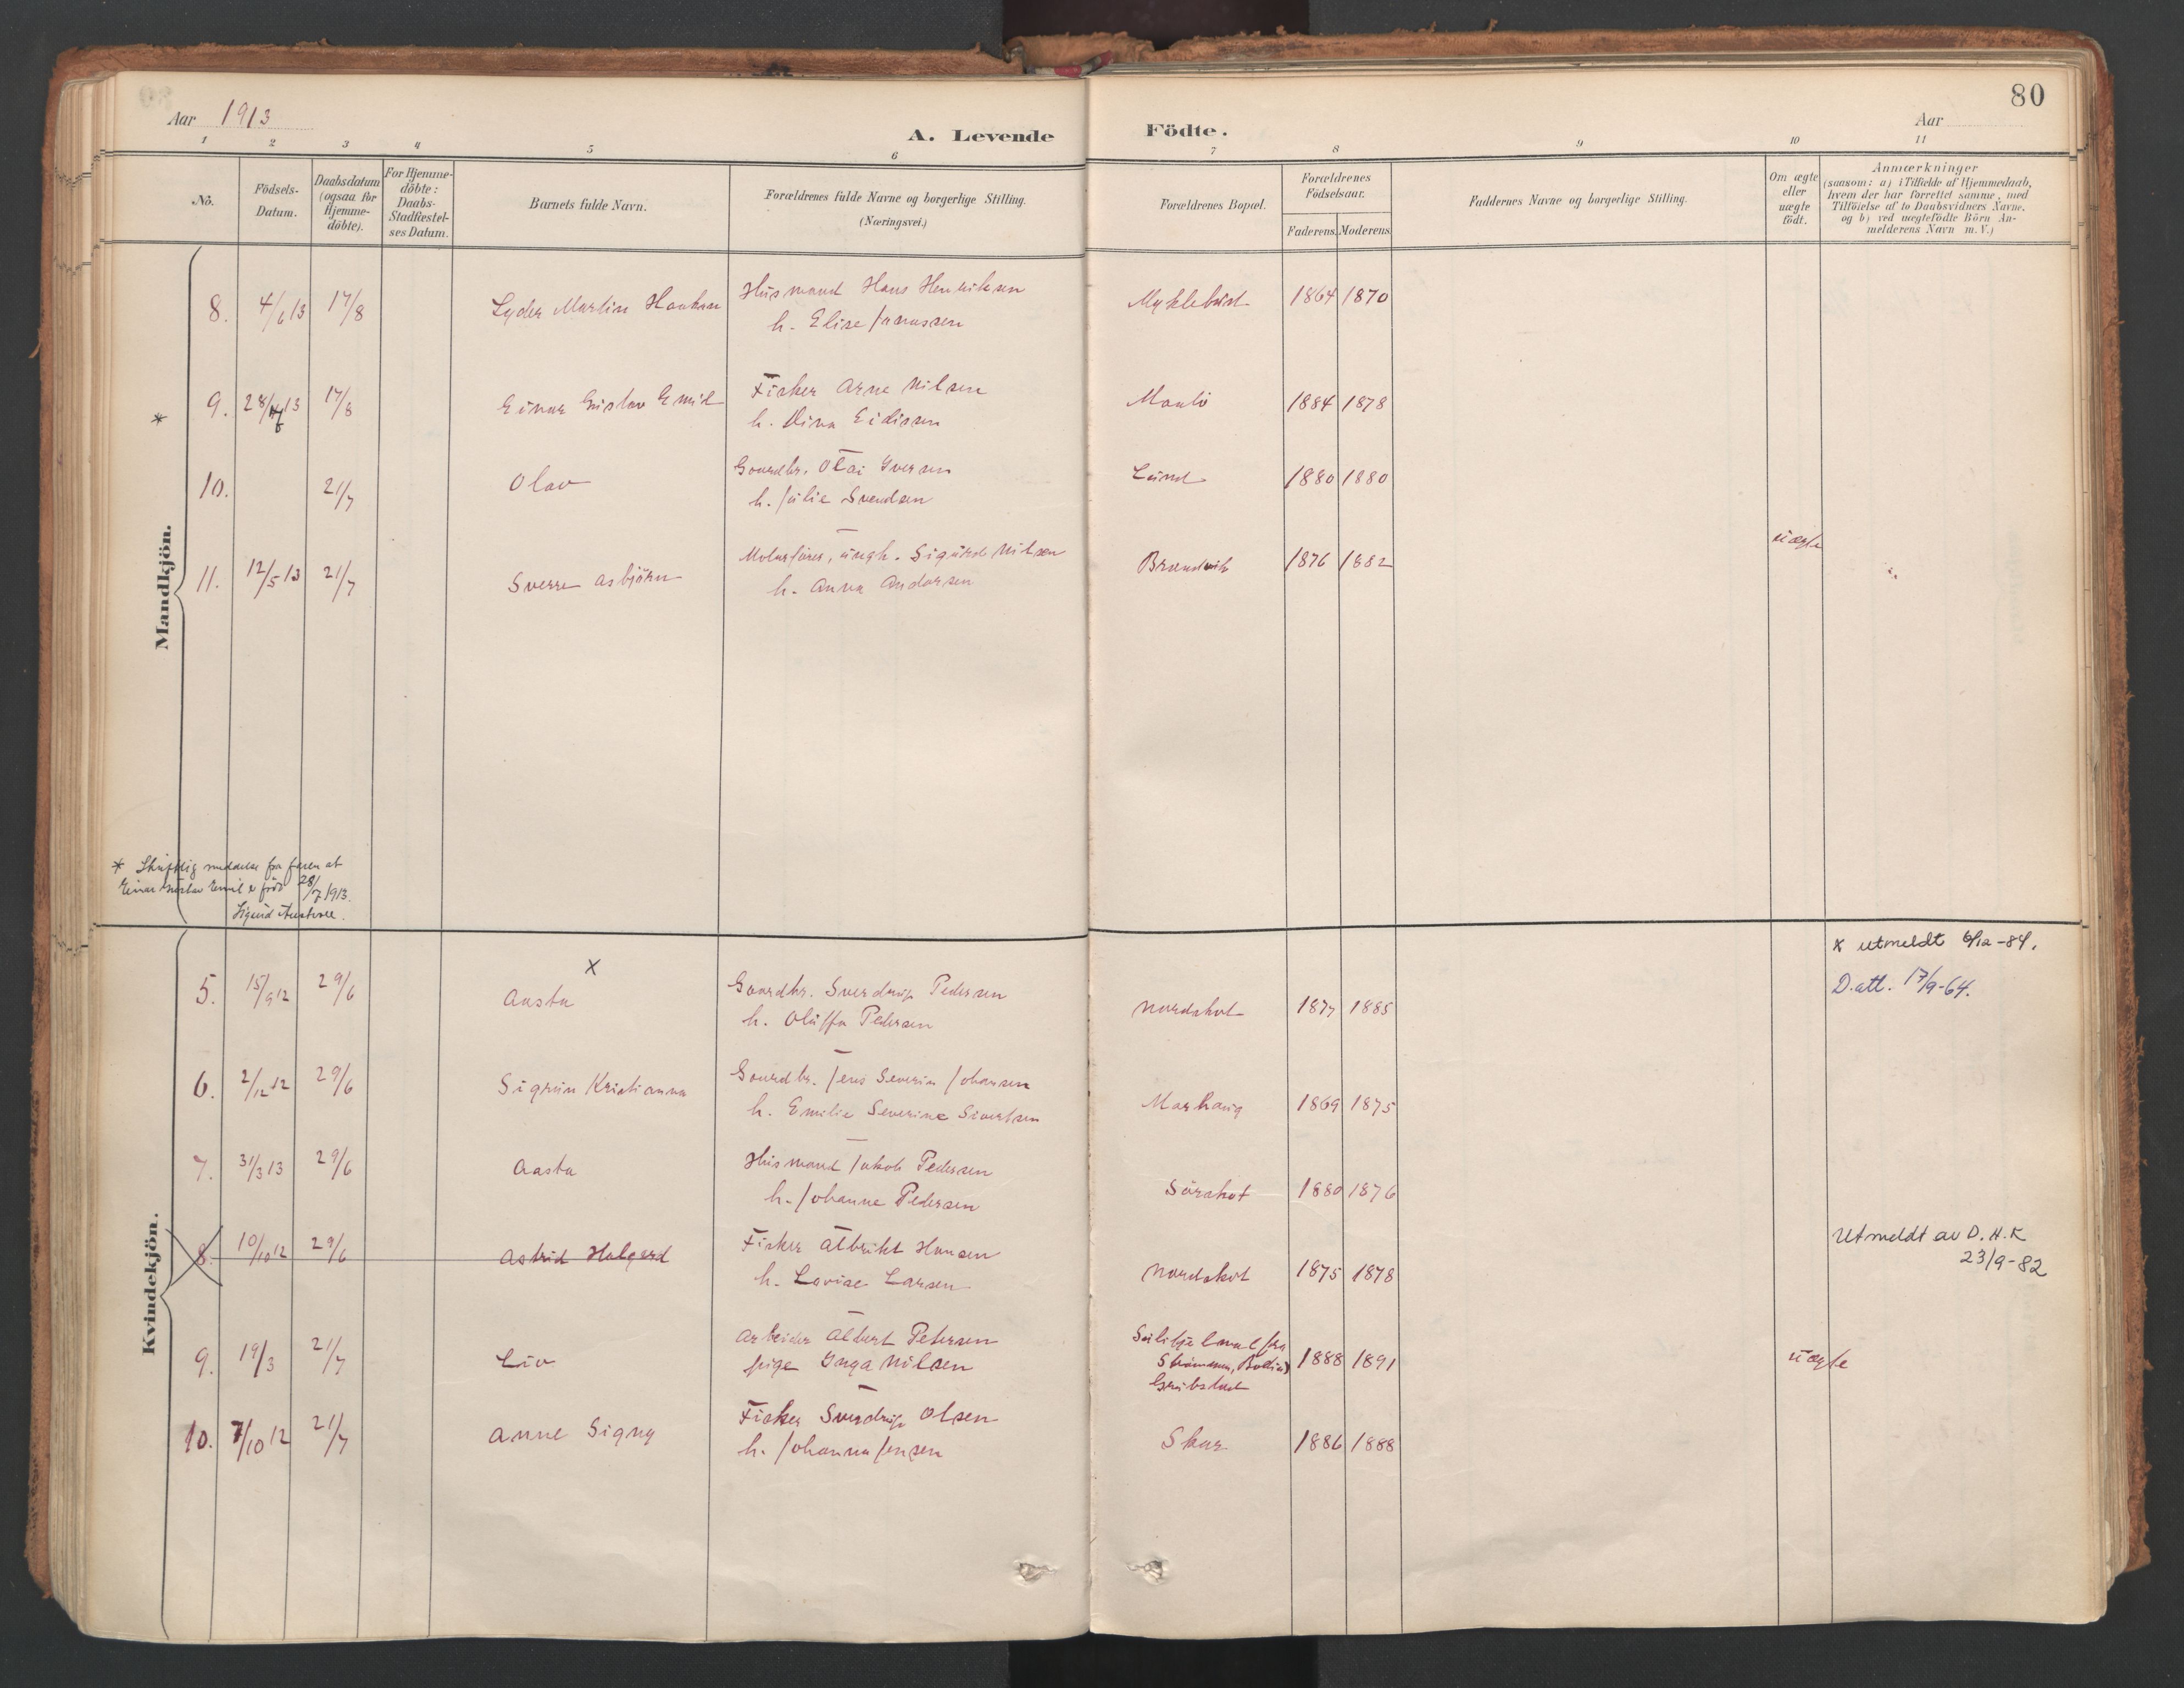 80
Aar 1913
A. Levende
Födte.
Aar
1 2 3 4 5 6 7 8 9 10 11
No.
Födsels-
Datum.
Daabsdatum
(ogsaa for
Hjemme-
döbte).
For Hjemme-
döbte:
Daabs-
Stadfæstel-
ses Datum.
Barnets fulde Navn.
Forældrenes fulde Navne og borgerlige Stilling.
(Næringsvei.)
Forældrenes Bopæl.
Forældrenes
Födselsaar.
Faderens. Moderens.
Faddernes Navne og borgerlige Stilling.
Om ægte
eller
uægte
födt.
Anmærkninger
(saasom: a) i Tilfælde af Hjemmedaab,
hvem der har forrettet samme, med
Tilföielse af to Daabsvidners Navne,
og b) ved uægtefödte Börn An-
melderens Navn m.V.)
Mandkjön.
8. 4/6 13 17/8 Lyder Martin Husmand Hans Henriksen Myklebust 1864 1870
h. Elise Janussen
* 9. 28/7 13 17/8 Einar Gustav Emil Fisker Arne Nilsen 1884 1878
h. Dina Eidissen
10. 21/7 Olav Gaardbr. Otai Iversen Lund 1880 1880
h. Julie Svendsen
11. 12/5 13 21/7 Sverre Asbjörn Motorförer, ungk. Sigurd Nilsen Brændvik 1876 1882 uægte
h. Anna Andersen
* Skriftlig meddelse fra faren at
Einar Gustav Emil er född 28/7 1913.
Sigurd
Kvindekjön.
x utmeldt 6/12-84.
5. 15/9 12 29/6 Aasta x Gaardbr. Sverdrup Pedersen Nordskot 1877 1885 D.att. 17/9-64.
h. Oluffa Pedersen
6. 2/12 12 29/6 Sigrun Kristianna Gaardbr. Jens Severin Johansen Marhaug 1869 1875
h. Emilie Severine Sivertsen
7. 31/3 13 29/6 Aasta Husmand Jakob Pedersen Sörskot 1880 1876
h. Johanne Pedersen
8. 10/10 12 29/6 Astrid Halgerd Fisker Albrikt Hansen Nordskot 1875 1878 Utmeldt av D.H.K
h. Lovise Larsen 23/9-82
9. 19/3 21/7 Liv Arbeider Albert Petersen Sulitjelma fra
pige Inga Nilsen Strömsnes, Bodin) 1888 1891 uægte
Grubstad
10. 7/10 12 21/7 Anne Signy Fisker Sverdrup Olsen Skar 1886 1888
h. Johanna Jensen